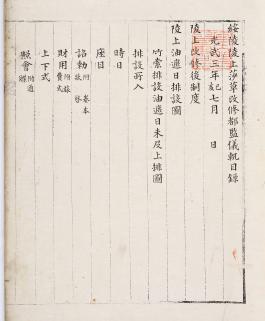 綏陵陵上莎草改修都監儀軌目錄
光武三年己亥七月 日
陵上改修後制度
陵上油遮日排設圖
竹索排設油遮日未及上排圖
排設所入
時日
座目
詔勅 附 奏本
財用 附
上下式
照會 附 通牒